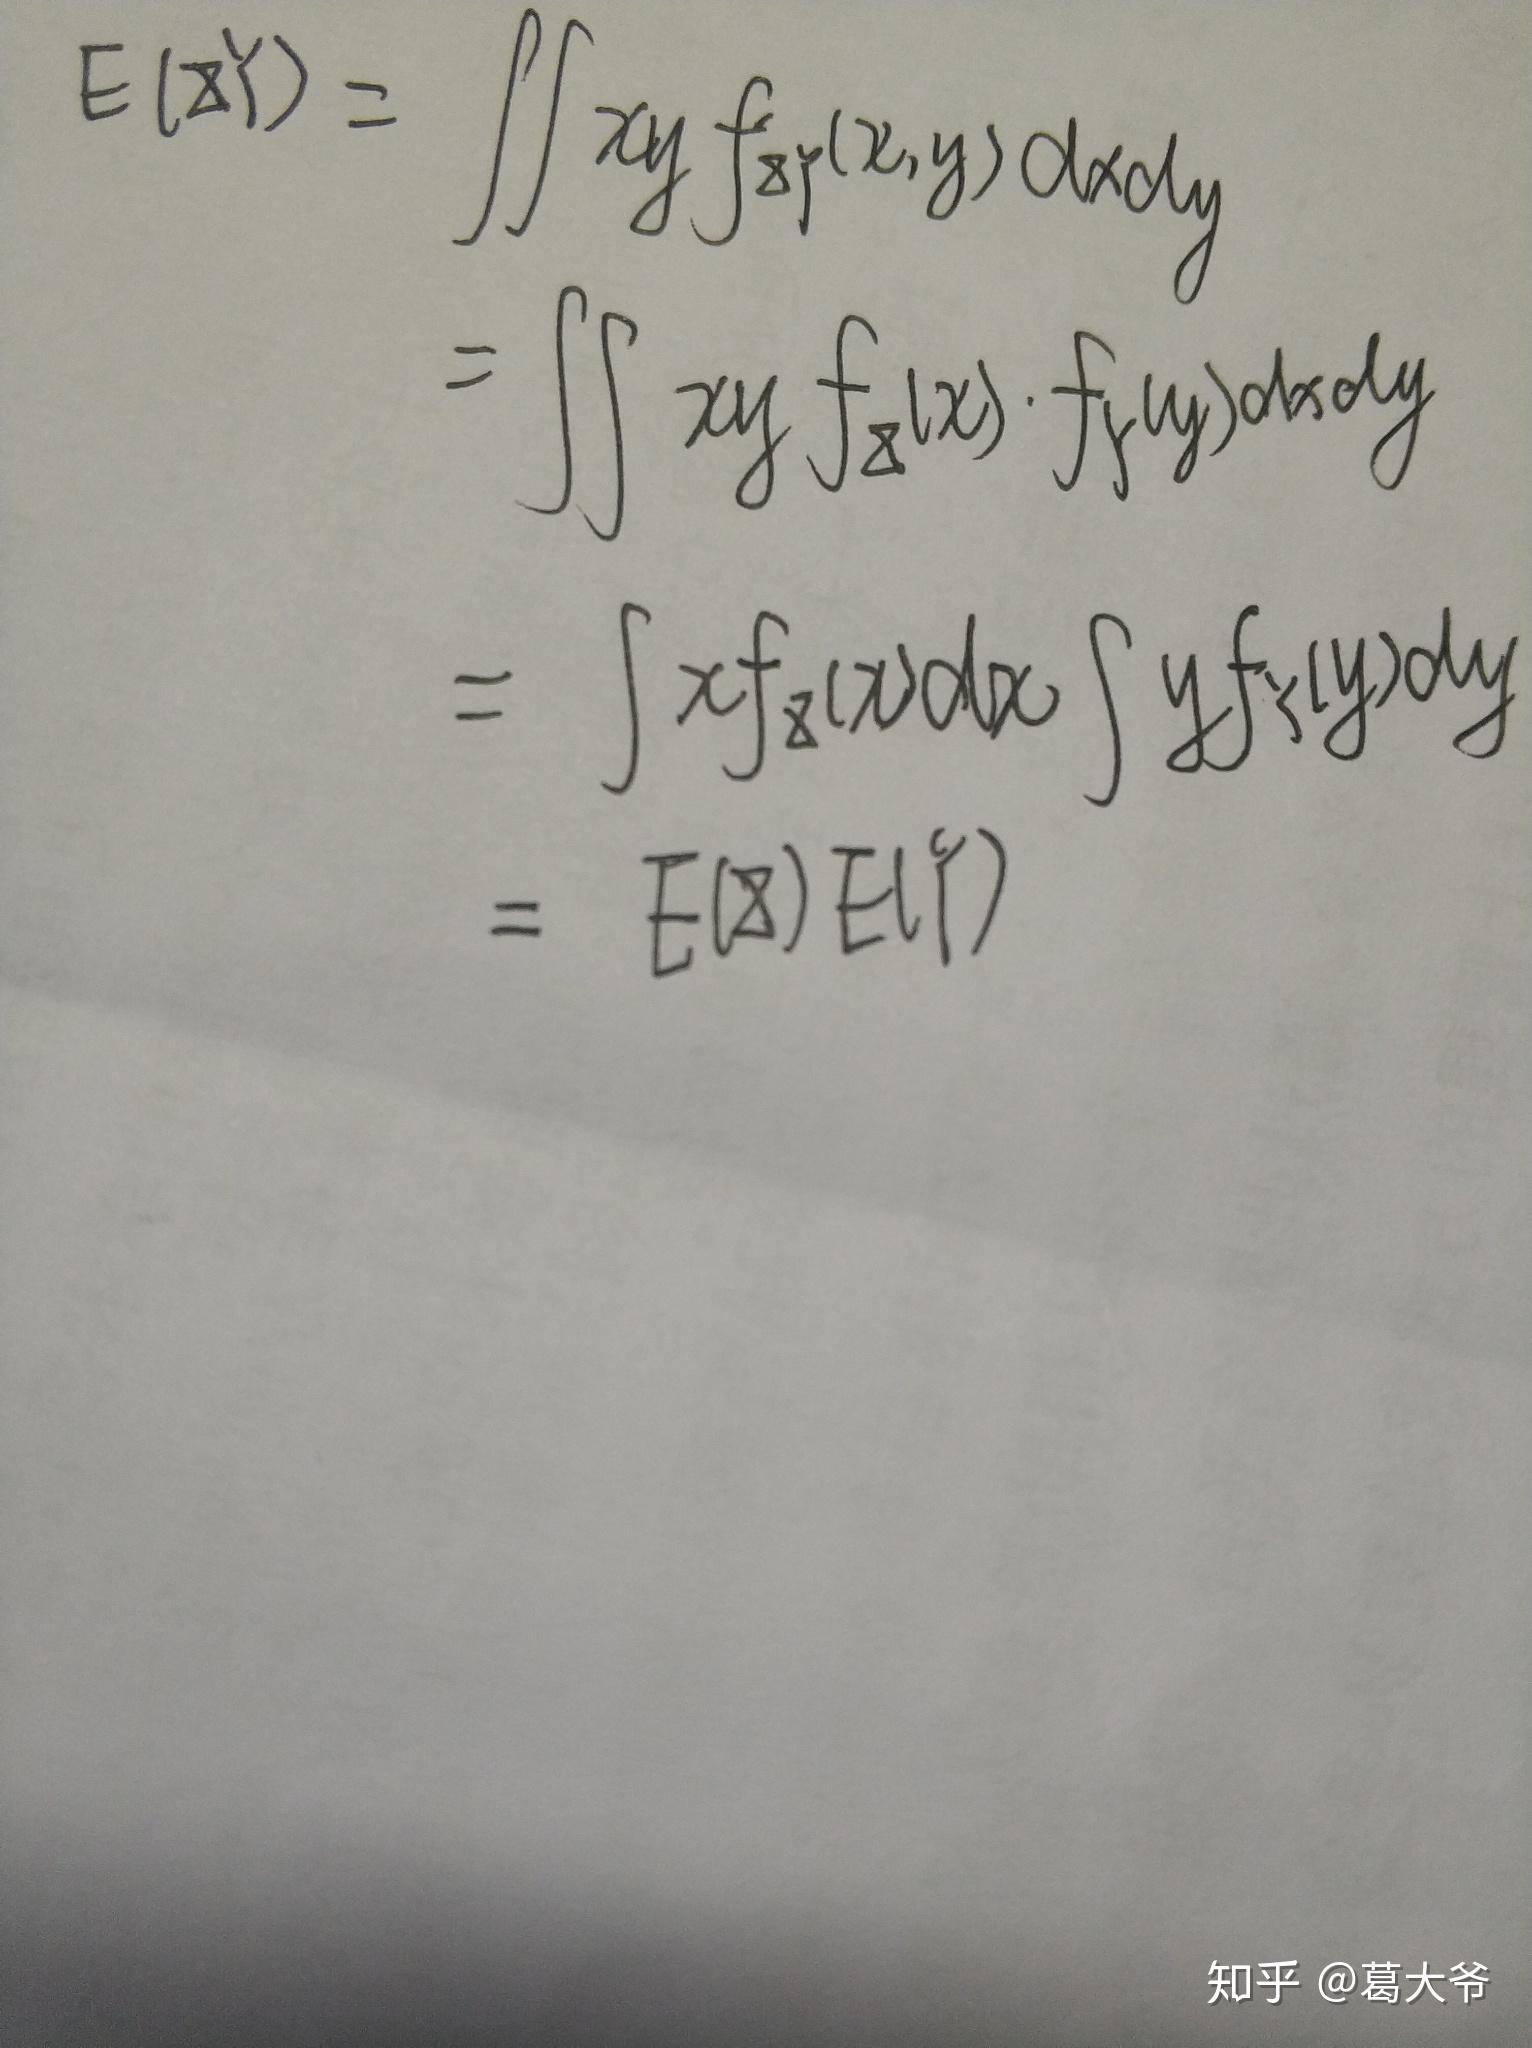 E(XY) = ∬ xy f_XY(x,y) dxdy
= ∬ xy f_X(x) · f_Y(y) dxdy
= ∫ x f_X(x) dx ∫ y f_Y(y) dy
= E(X) E(Y)
知乎 @葛大爷